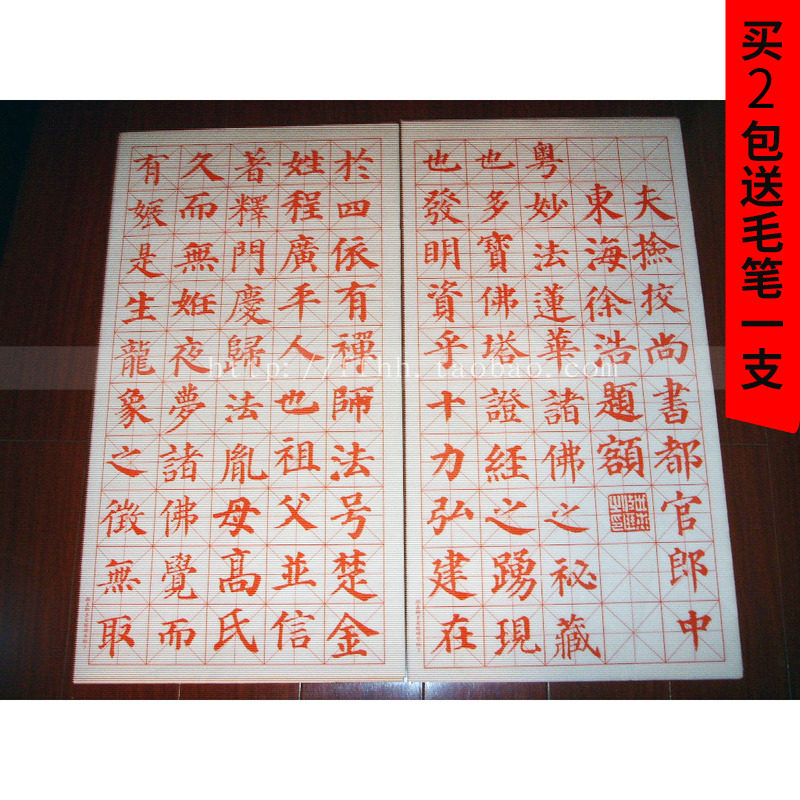 买2包送毛笔一支
夫撿挍尚書都官郎中
東海徐浩題額
粵妙法蓮華諸佛之祕藏
也多寶佛塔證經之踴現
也發明資乎十力弘建在
於四依有禪師法号楚金
姓程廣平人也祖父並信
著釋門慶歸法胤母高氏
久而無姙夜夢諸佛覺而
有娠是生龍象之徵無取